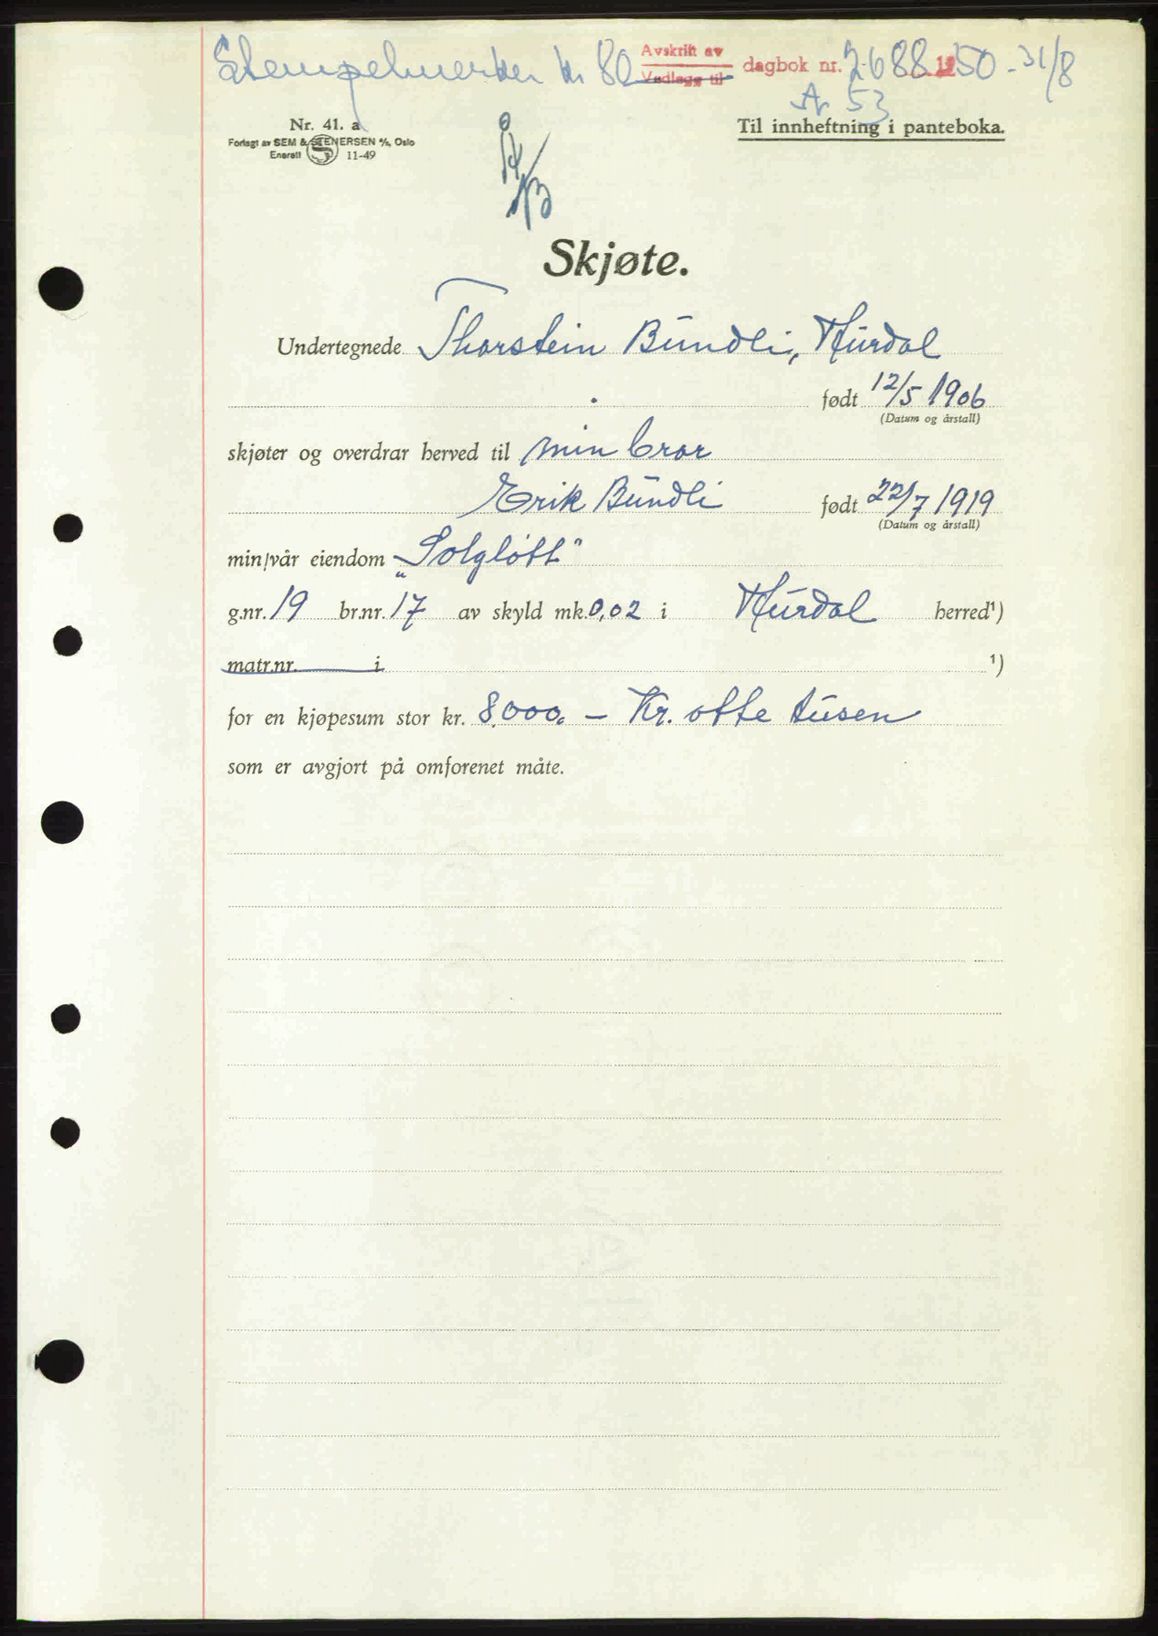 Stempelmerker kr 80
Avskrift av
Vedlegg til
dagbok nr. 2688 1950 - 31/8
A. 53
Nr. 41. a
Forlagt av SEM & STENERSEN A/S, Oslo
Enerett 11-49
Til innheftning i panteboka.
Skjøte.
Undertegnede Thorstein Bundli, Hurdal
født 12/5 1906
(Datum og årstall)
skjøter og overdrar herved til min bror
Erik Bundli født 22/7 1919
(Datum og årstall)
min/vår eiendom „Solgløtt"
g.nr. 19 br.nr. 17 av skyld mk. 0,02 i Hurdal herred¹)
matr.nr. i ¹)
for en kjøpesum stor kr. 8000. – Kr. otte tusen
som er avgjort på omforenet måte.